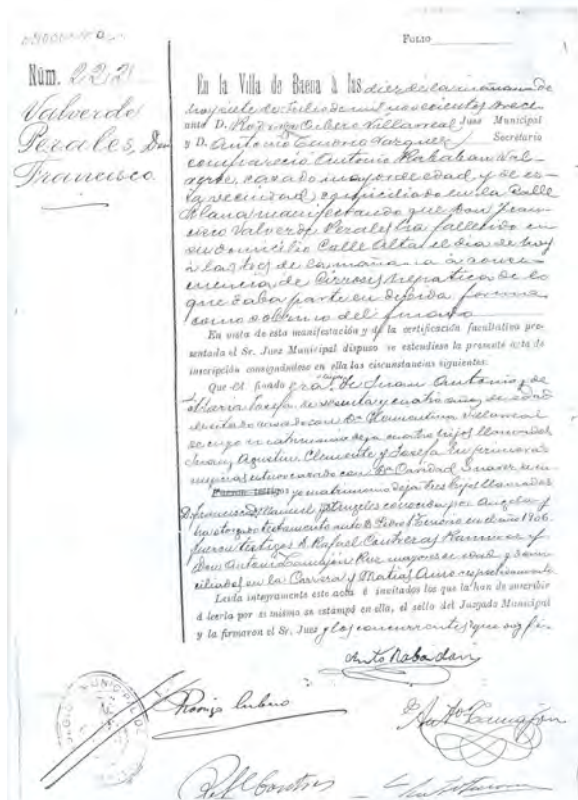 FOLIO
Núm. 222
Valverde
Perales, Don
Francisco.
En la Villa de Baena á las diez de la mañana de
hoy siete de Julio de mil novecientos trece
ante D. Rodrigo Cubero Villarreal Juez Municipal
y D. Antonio Vazquez Secretario
compareció Antonio Rabadan
casado, mayor de edad y de es-
ta vecindad, domiciliado en la Calle
Llana manifestando que Don Fran-
cisco Valverde Perales ha fallecido en
su domicilio Calle Alta, el dia de hoy
á las de la mañana á conse-
cuencia de Cirrosis hepatica de lo
que daba parte en debida forma
como sobrino del finado
En vista de esta manifestación y de la certificación facultativa pre-
sentada el Sr. Juez Municipal dispuso se extendiese la presente acta de
inscripción consignándose en ella las circunstancias siguientes:
Que el finado era hijo de Juan Antonio y de
Maria Josefa, de sesenta y cuatro años de edad
casado con Dª Clementina Villarreal
de cuyo matrimonio deja cuatro hijos llamados
Juan, Agustin, Clemente y Josefa. En primeras
nupcias estuvo casado con Dª Caridad Suarez de cu-
Fueron testigos yo matrimonio deja tres hijos llamados
D. Francisco, Manuel y Angeles conocida por Angela y
testamento ante D. Pedro en el año 1906.
fueron testigos D. Rafael Contreras Ramirez y
Don Antonio Ruz mayores de edad y domi-
ciliados en la Carrera y Matias Amo respectivamente
Leida integramente esta acta é invitados los que la han de suscribir
á leerla por si mismo se estampó en ella, el sello del Juzgado Municipal
y la firmaron el Sr. Juez y los concurrentes que doy fé.
Antº Rabadan
Rodrigo Cubero